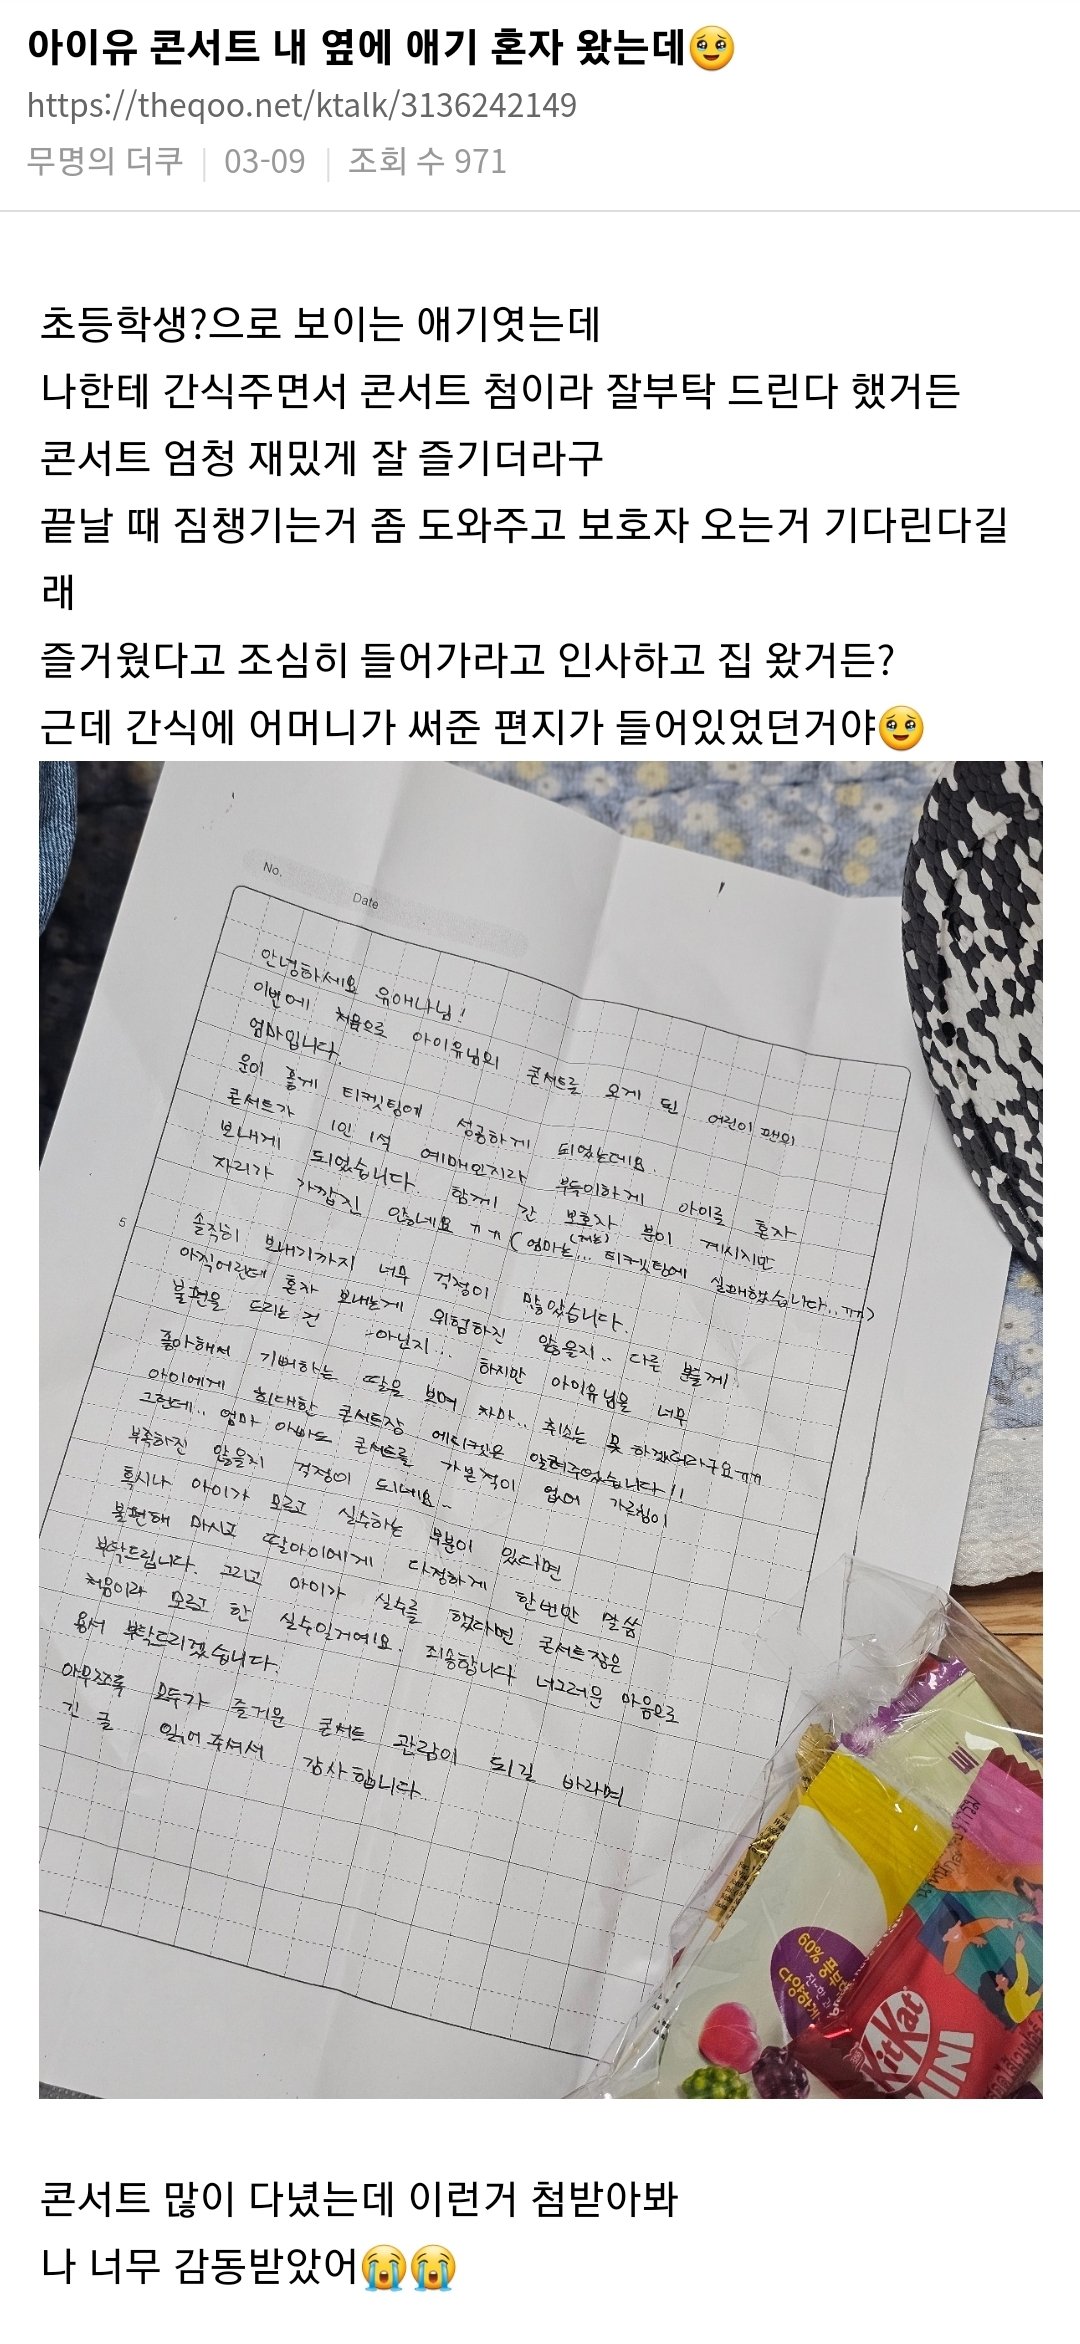 아이유 콘서트 내 옆에 애기 혼자 왔는데🥹
https://theqoo.net/ktalk/3136242149
무명의 더쿠 | 03-09 | 조회 수 971
초등학생?으로 보이는 애기엿는데
나한테 간식주면서 콘서트 첨이라 잘부탁 드린다 했거든
콘서트 엄청 재밌게 잘 즐기더라구
끝날 때 짐챙기는거 좀 도와주고 보호자 오는거 기다린다길
래
즐거웠다고 조심히 들어가라고 인사하고 집 왔거든?
근데 간식에 어머니가 써준 편지가 들어있었던거야🥹
No.
Date
안녕하세요 유애나님!
이번에 처음으로 아이유님의 콘서트를 오게 된 어린이 팬의
엄마입니다.
운이 좋게 티켓팅에 성공하게 되었는데요.
콘서트가 1인 1석 예매인지라 부득이하게 아이를 혼자
보내게 되었습니다. 함께 간 보호자 분이 계시지만
자리가 가깝진 않네요 ㅠㅠ (엄마는(저는)... 티켓팅에 실패했습니다..ㅠㅠ)
5
솔직히 보내기까지 너무 걱정이 많았습니다.
아직어린데 혼자 보내는게 위험하진 않을지.. 다른 분들께
불편을 드리는 건 아닌지... 하지만 아이유님을 너무
좋아해서 기뻐하는 딸을 보며 차마.. 취소는 못 하겠더라구요ㅠㅠ
아이에게 최대한 콘서트장 에티켓은 알려주었습니다!!
그런데.. 엄마 아빠도 콘서트를 가본적이 없어 가르침이
부족하진 않을지 걱정이 되네요~
혹시나 아이가 모르고 실수하는 부분이 있다면
불편해 마시고 딸아이에게 다정하게 한번만 말씀
부탁드립니다. 그리고 아이가 실수를 했다면 콘서트장은
처음이라 모르고 한 실수일거예요. 죄송합니다 너그러운 마음으로
용서 부탁드리겠습니다.
아무쪼록 모두가 즐거운 콘서트 관람이 되길 바라며
긴 글 읽어 주셔서 감사합니다.
60%
KitKat
MINI
콘서트 많이 다녔는데 이런거 첨받아봐
나 너무 감동받았어😭😭